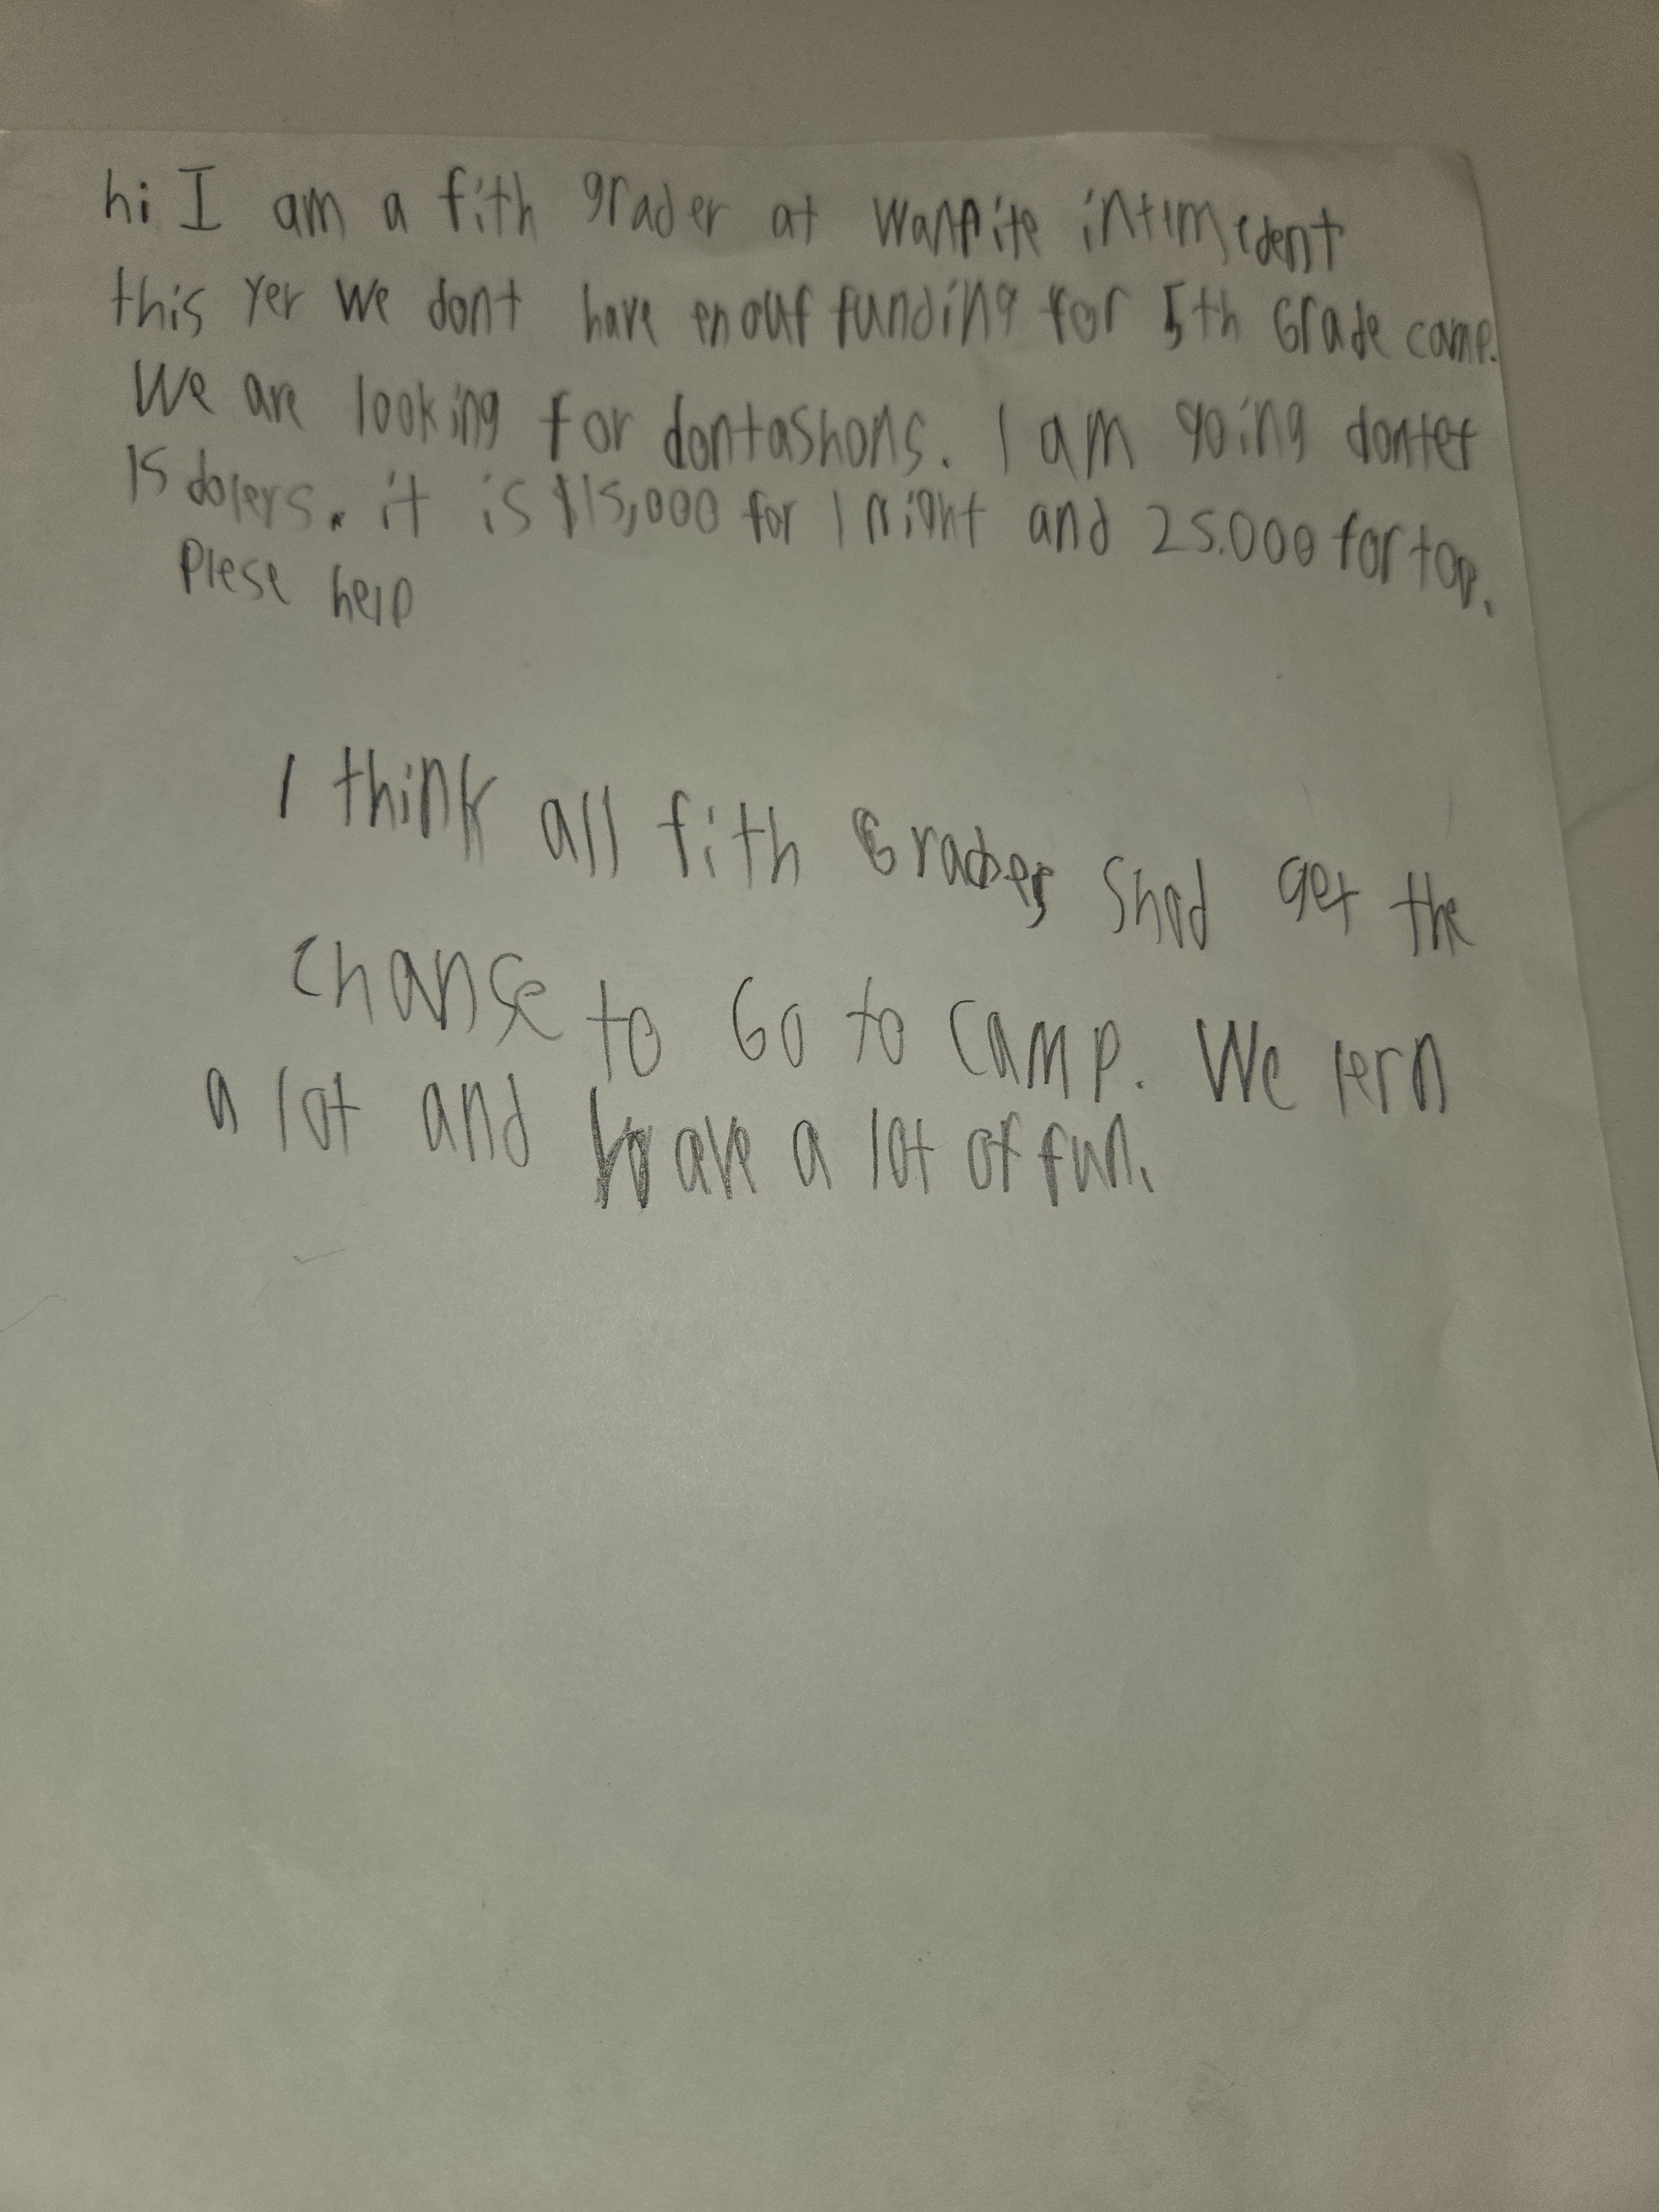 hi I am a fith grader at Wanpite intimedent
this yer We dont have enouf funding for 5th Grade camp.
We are looking for dontashons. I am going dontet
15 dolers. it is $15,000 for 1 night and 25.000 for too.
Plese help
I think all fith Graders Shod get the
chanse to Go to camp. We lern
a lot and have a lot of fun.